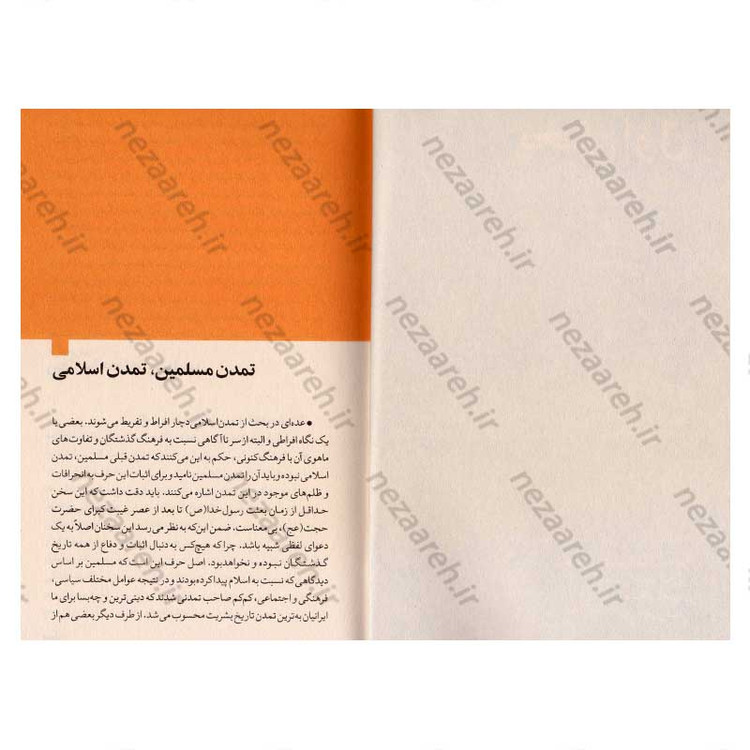 تمدن مسلمین، تمدن اسلامی
• عده‌ای در بحث از تمدن اسلامی دچار افراط و تفریط می‌شوند. بعضی با
یک نگاه افراطی و البته از سر ناآگاهی نسبت به فرهنگ گذشتگان و تفاوت‌های
ماهوی آن با فرهنگ کنونی، حکم به این می‌کنند که تمدن قبلی مسلمین، تمدن
اسلامی نبوده و باید آن را تمدن مسلمین نامید و برای اثبات این حرف به انحرافات
و ظلم‌های موجود در این تمدن اشاره می‌کنند. باید دقت داشت که این سخن
حداقل از زمان بعثت رسول خدا(ص) تا بعد از عصر غیبت کبرای حضرت
حجت(عج)، بی‌معناست. ضمن این‌که به نظر می‌رسد این سخنان اصلاً به یک
دعوای لفظی شبیه باشد. چرا که هیچ‌کس به دنبال اثبات و دفاع از همه تاریخ
گذشتگان نبوده و نخواهد بود. اصل حرف این است که مسلمین بر اساس
دیدگاهی که نسبت به اسلام پیدا کرده بودند و در نتیجه عوامل مختلف سیاسی،
فرهنگی و اجتماعی، کم‌کم صاحب تمدنی شدند که دینی‌ترین و چه‌بسا برای ما
ایرانیان به‌ترین تمدن تاریخ بشریت محسوب می‌شد. از طرف دیگر بعضی هم از
nezaareh.ir
nezaareh.ir
nezaareh.ir
nezaareh.ir
nezaareh.ir
nezaareh.ir
nezaareh.ir
nezaareh.ir
nezaareh.ir
nezaareh.ir
nezaareh.ir
nezaareh.ir
nezaareh.ir